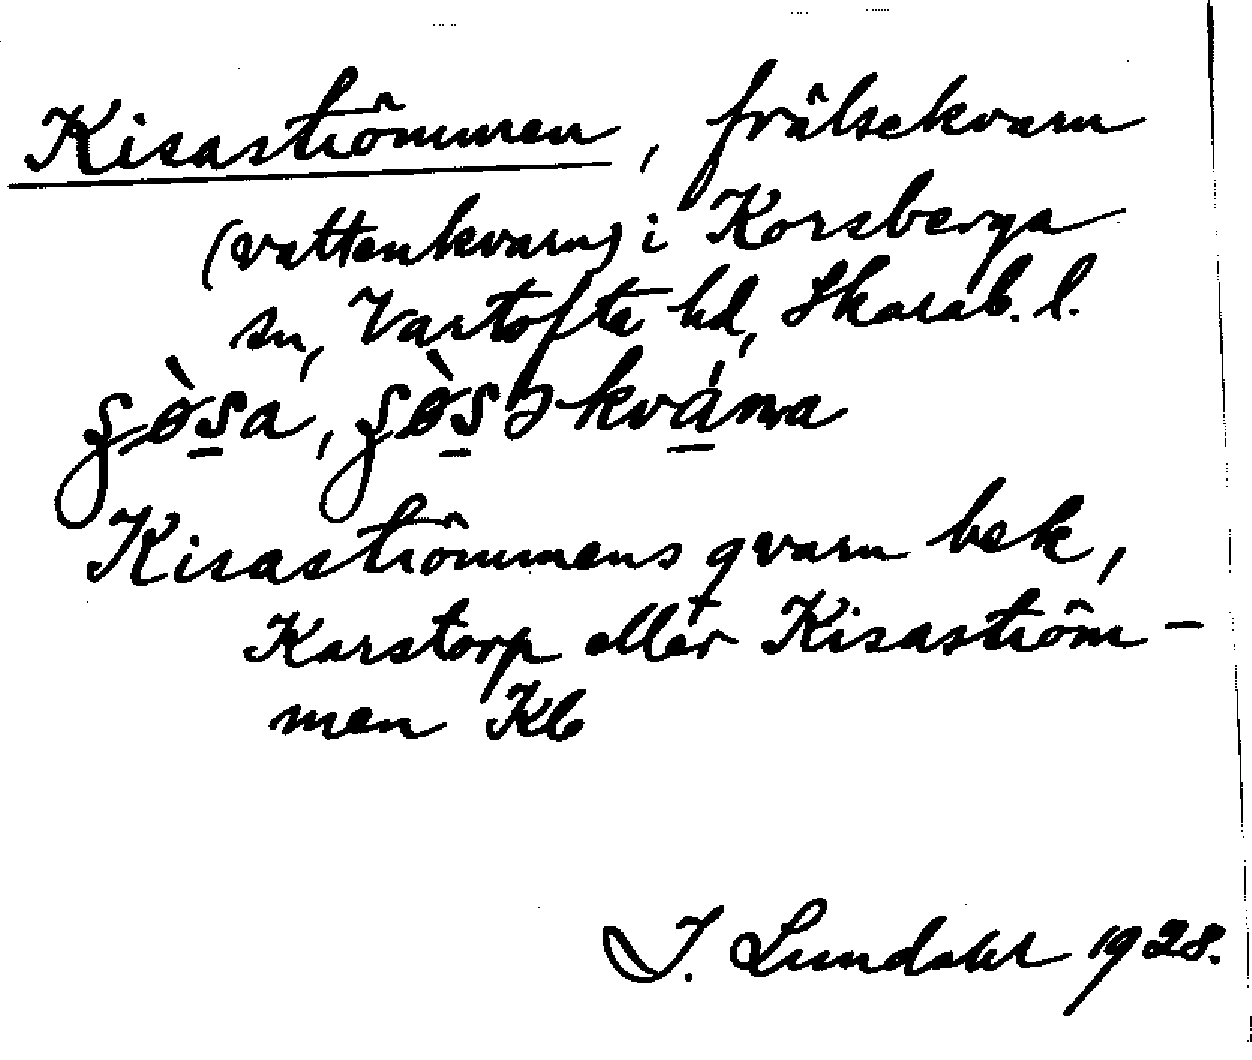 Kisaströmmen, frälsekvarn
(vattenkvarn) i Korsberga
sn, Vartofta hd, Skarab. l.
Kisaströmmens qvarn bek,
Karstorp eller Kisaström-
men Kb
I. Lundahl 1928.